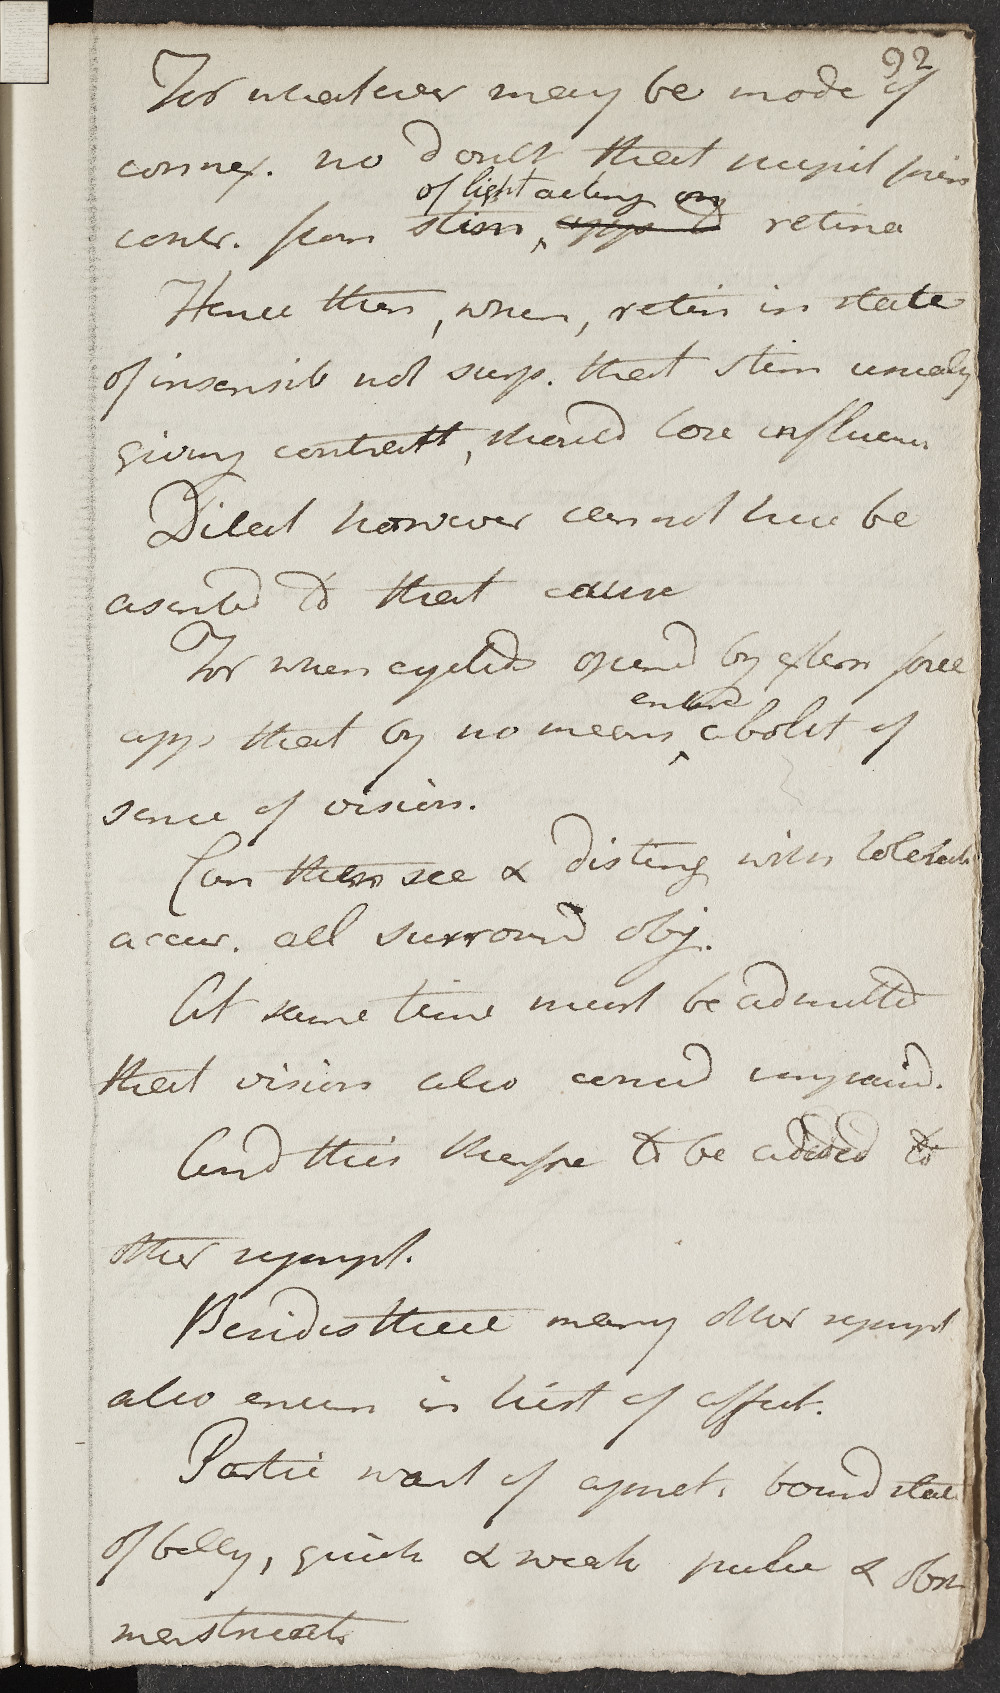 92
For whatever may be mode of
connex. no doubt that pupil
contr. from stim of light acting on apps to retina
Hence then, when, retin in state
of insensib not surp. that stim usualy
giving contractt, should lose influen
Dilat however cannot here be
ascribd to that cause
For when eyelids opend by extern force
app. that by no means entire abolit of
sense of vision.
Can then see & disting with tolerab
accur. all surround obj.
At same time must be admittd
that vision also consid impaird.
And this therfre to be added to
other sympt.
Besides these many other sympt
also enum in hist of affect.
Partic want of appet. bound state
of belly, quick & weak pulse & obst
menstruat.